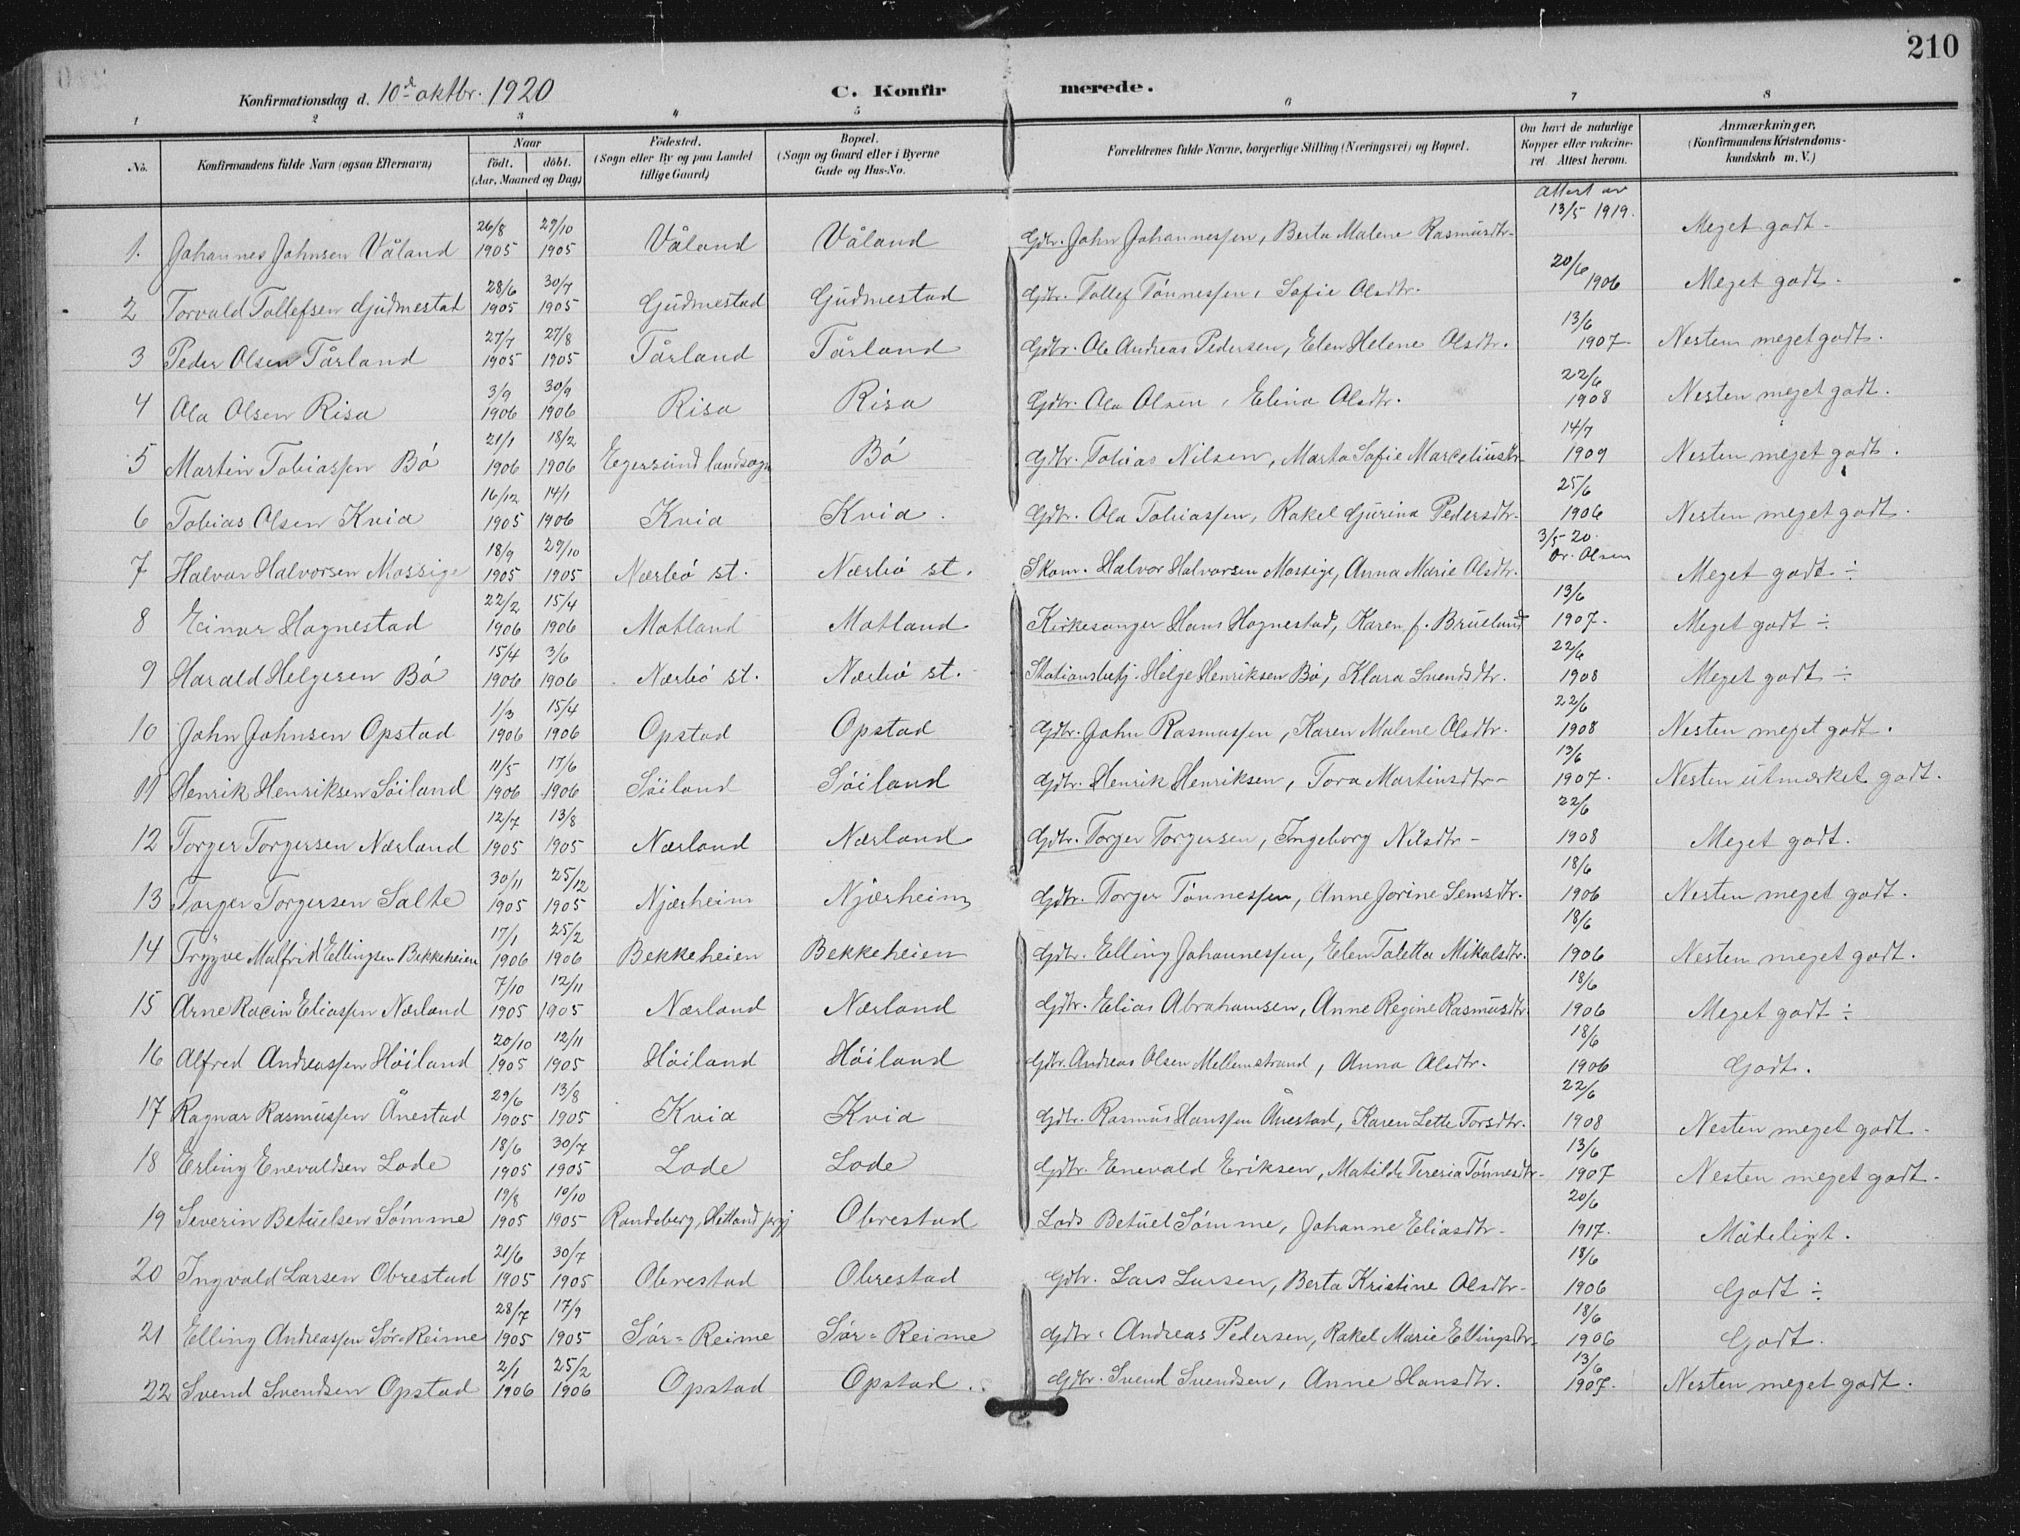 210
Konfirmationsdag d. 10de oktbr. 1920 C. Konfirmerede.
1 2 3 4 5 6 7 8
No. Konfirmandens fulde Navn (ogsaa Efternavn) Naar født. døbt. (Aar, Maaned og Dag) Fødested. (Sogn eller By og paa Landet tillige Gaard) Bopæl. (Sogn og Gaard eller i Byerne Gade og Hus-No. Forældrenes fulde Navne, borgerlige Stilling (Næringsvei) og Bopæl. Om havt de naturlige Kopper eller vakcineret. Attest herom. Anmærkninger, (Konfirmandens Kristendomskundskab m. V.)
1. Johannes Johnsen Våland 26/8 1905 29/10 1905 Våland Våland Gdbr. John Johannessen, Berta Malene Rasmusdtr. Attest av 13/5 1919. Meget godt.
2 Torvald Tollefsen Gudmestad 28/6 1905 30/7 1905 Gudmestad Gudmestad Gdbr. Tollef Tønnessen, Sofie Olsdtr. 20/6 1906 Meget godt.
3 Peder Olsen Tårland 27/7 1905 27/8 1905 Tårland Tårland Gdbr. Ole Andreas Pedersen, Elen Helene Olsdtr. 13/6 1907 Nesten meget godt.
4 Ola Olsen Risa 3/9 1906 30/9 1906 Risa Risa Gdbr. Ola Olsen, Elina Olsdtr. 22/6 1908 Nesten meget godt.
5 Martin Tobiassen Bø 21/1 1906 18/2 1906 Egersund landsogn Bø Gdbr. Tobias Nilsen, Marta Sofie Marceliusdtr. 14/7 1909 Nesten meget godt.
6 Tobias Olsen Kvia 16/12 1905 14/1 1906 Kvia Kvia. Gdbr. Ola Tobiassen, Rakel Gurina Pedersdtr. 25/6 1906 Nesten meget godt.
7 Halvor Halvorsen Mossige 18/9 1905 29/10 1905 Nærbø st. Nærbø st. Skom. Halvor Halvorsen Mossige, Anna Marie Olsdtr. 3/5 20. Dr. Olsen Meget godt ÷
8 Einar Hognestad 22/2 1906 15/4 1906 Motland Motland Kirkesanger Hans Hognestad, Karen f. Brueland 13/6 1907. Meget godt ÷
9 Harald Helgesen Bø 15/4 1906 3/6 1906 Nærbø st. Nærbø st. Stationsbetj. Helge Henriksen Bø, Klara Svendsdtr. 22/6 1908 Meget godt ÷
10 John Johnsen Opstad 1/3 1906 15/4 1906 Opstad Opstad Gdbr. John Rasmussen, Karen Malene Olsdtr. 22/6 1908 Nesten meget godt.
11 Henrik Henriksen Søiland 11/5 1906 17/6 1906 Søiland Søiland Gdbr. Henrik Henriksen, Tora Martinsdtr. 13/6 1907. Nesten utmærket godt.
12 Torger Torgersen Nærland 12/7 1905 13/8 1905 Nærland Nærland Gdbr. Torger Torgersen, Ingeborg Nilsdtr. 22/6 1908 Meget godt.
13 Torger Torgersen Salte 30/11 1905 25/12 1905 Njærheim Njærheim Gdbr. Torger Tønnessen, Anne Jorine Semsdtr. 18/6 1906 Nesten meget godt.
14 Trygve Malfrid Ellingsen Bekkeheien 17/1 1906 25/2 1906 Bekkeheien Bekkeheien Gdbr. Elling Johannessen, Elen Taletta Mikalsdtr. 18/6 1906 Nesten meget godt.
15 Arne Racin Eliassen Nærland 7/10 1905 12/11 1905 Nærland Nærland Gdbr. Elias Abrahamsen, Anne Regine Rasmusdtr. 18/6 1906 Meget godt ÷
16 Alfred Andreassen Høiland 20/10 1905 12/11 1905 Høiland Høiland Gdbr. Andreas Olsen Mellemstrand, Anna Olsdtr. 18/6 1906 Godt.
17 Ragnar Rasmussen Ånestad 29/6 1905 13/8 1905 Kvia Kvia Gdbr. Rasmus Hanssen Ånestad, Karen Lette Torsdtr. 22/6 1908 Nesten meget godt.
18 Erling Enevaldsen Lode 18/6 1905 30/7 1905 Lode Lode Gdbr. Enevald Eriksen, Matilde Teresia Tønnesdtr. 13/6 1907 Nesten meget godt.
19 Severin Betuelsen Sømme 19/8 1905 10/10 1905 Randeberg, Hetland prgj Obrestad Lods Betuel Sømme, Johanne Eliasdtr. 20/6 1917. Mådeligt.
20 Ingvald Larsen Obrestad 21/6 1905 30/7 1905 Obrestad Obrestad Gdbr. Lars Larsen, Berta Kristine Olsdtr. 18/6 1906 Godt ÷
21 Elling Andreassen Sør=Reime 28/7 1905 17/9 1905 Sør=Reime Sør=Reime Gdbr. Andreas Pedersen, Rakel Marie Ellingsdtr. 18/6 1906 Godt.
22 Svend Svendsen Opstad 2/1 1906 25/2 1906 Opstad Opstad. Gdbr. Svend Svendsen, Anne Hansdtr. 13/6 1907. Nesten meget godt.